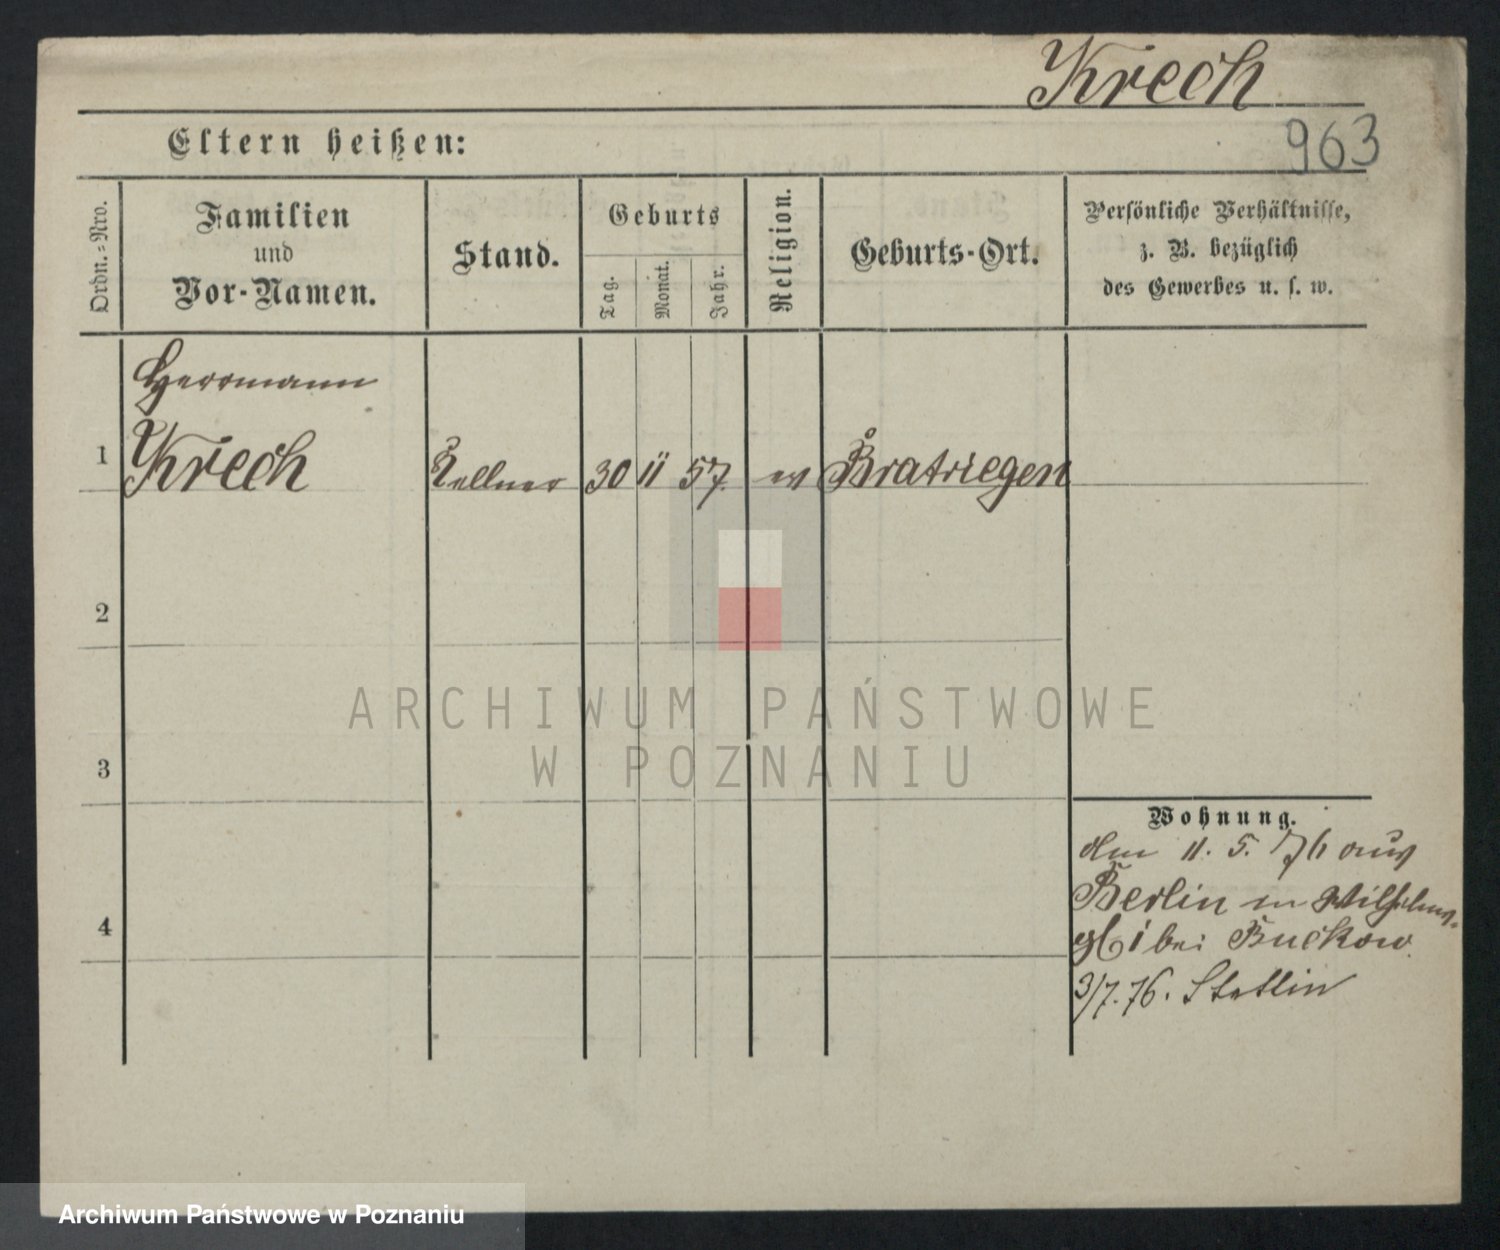 Krech
963
Eltern heißen:
Ordn.-Nro.
Familien
und
Vor-Namen.
Stand.
Geburts
Tag.
Monat.
Jahr.
Religion.
Geburts-Ort.
Persönliche Verhältnisse,
z. B. bezüglich
des Gewerbes u. s. w.
Herrmann
1 Krech Kellner 30 11 57. ev Bratriegen
2
3
4
Wohnung.
den 11. 5. 76 aus
Berlin in Wilhelms-
bei Buckow.
3/7. 76. Stettin
ARCHIWUM PAŃSTWOWE
W POZNANIU
Archiwum Państwowe w Poznaniu